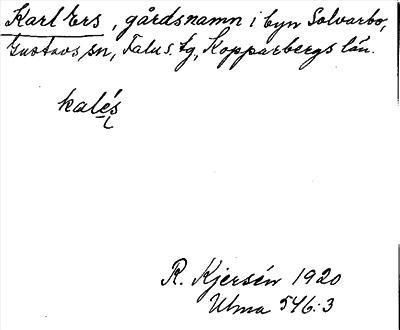 Karl Ers, gårdsnamn i byn Solvarbo,
Gustavs sn, Falu s. tg, Kopparbergs län.
kalés
R. Kjersén 1920
Ulma 546:3